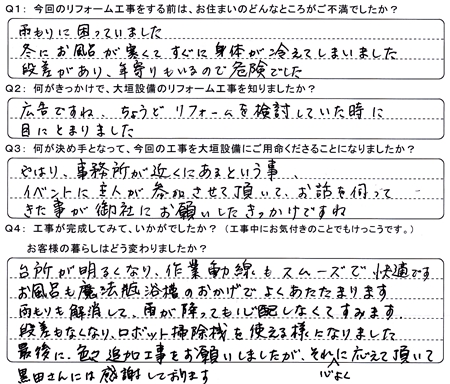 Q1: 今回のリフォーム工事をする前は、お住まいのどんなところがご不満でしたか?
雨もりに困っていました
冬にお風呂が寒くてすぐに身体が冷えてしまいました
段差があり、年寄りもいるので危険でした
Q2: 何がきっかけで、大垣設備のリフォーム工事を知りましたか?
広告ですね、ちょうどリフォームを検討していた時に
目にとまりました
Q3: 何が決め手となって、今回の工事を大垣設備にご用命くださることになりましたか?
やはり、事務所が近くにあるという事、
イベントに主人が参加させて頂いて、お話を伺って
きた事が御社にお願いしたきっかけですね
Q4: 工事が完成してみて、いかがでしたか?(工事中にお気付きのことでもけっこうです。)
お客様の暮らしはどう変わりましたか?
台所が明るくなり、作業動線もスムーズで快適です
お風呂も魔法瓶浴槽のおかげでよくあたたまります
雨もりも解消して、雨が降っても心配しなくてすみます
段差もなくなり、ロボット掃除機を使える様になりました
最後に、色々追加工事をお願いしましたが、それに心よく応えて頂いて
黒田さんには感謝しております